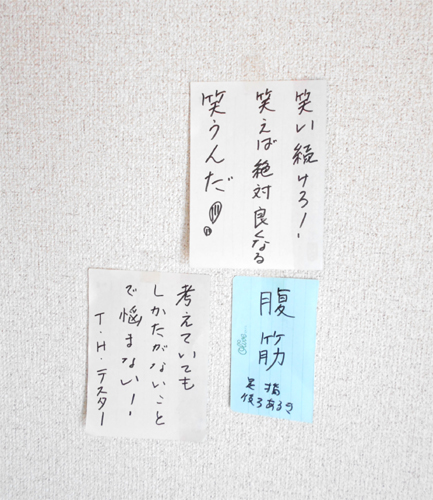 笑い続けろ!
笑えば絶対良くなる
笑うんだ!
考えていても
しかたがないこと
で悩まない!
T.H.テスター
腹筋
足指
後ろあるき